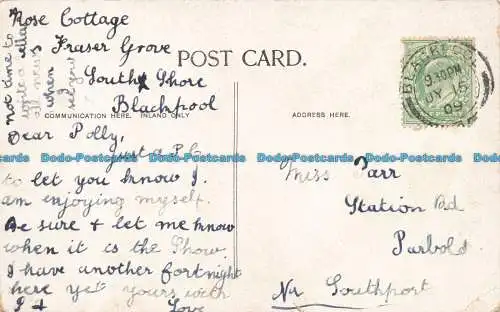 Rose Cottage
Fraser Grove
South Shore
Blackpool
not time to
write a
all news
when
see you
POST CARD.
COMMUNICATION HERE. INLAND ONLY
ADDRESS HERE.
BLACKPOOL
9.30PM
JY 15
09
Dear Polly,
just a P.C
to let you know I
am enjoying myself.
Be sure & let me know
when it is the Show.
I have another fortnight
here yet yours with
Love
Miss Parr
Station Rd
Parbold
Nr Southport
Dodo-Postcards Dodo-Postcards Dodo-Postcards Dodo-Postcards